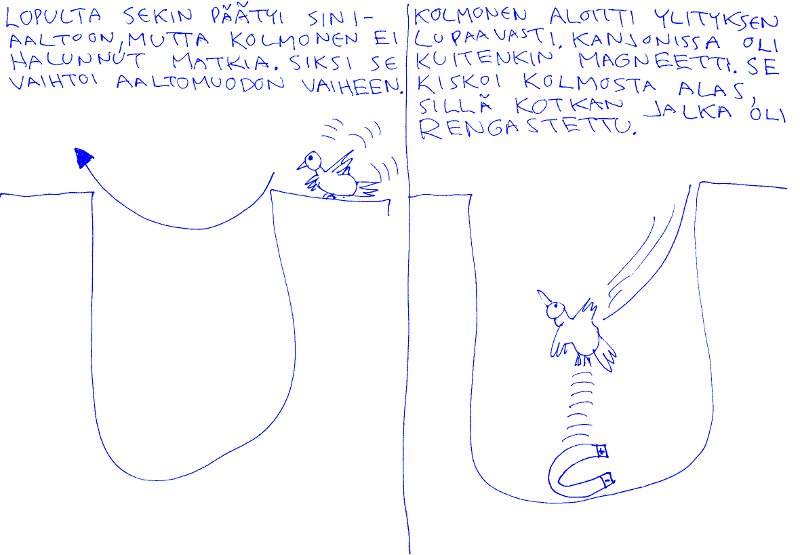 LOPULTA SEKIN PÄÄTYI SINI-
AALTOON, MUTTA KOLMONEN EI
HALUNNUT MATKIA. SIKSI SE
VAIHTOI AALTOMUODON VAIHEEN.
KOLMONEN ALOITTI YLITYKSEN
LUPAAVASTI. KANJONISSA OLI
KUITENKIN MAGNEETTI. SE
KISKOI KOLMOSTA ALAS,
SILLÄ KOTKAN JALKA OLI
RENGASTETTU.
+
-